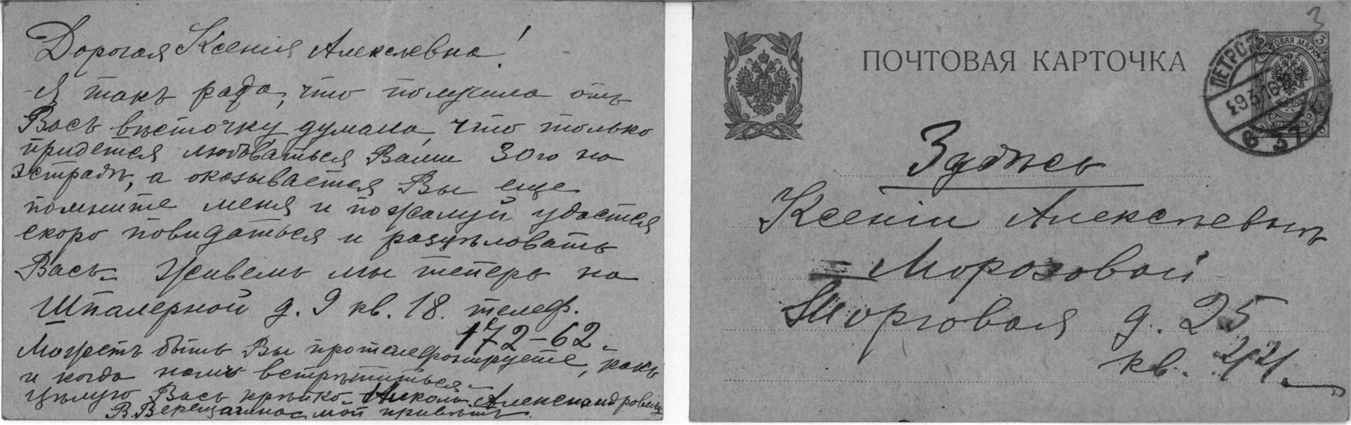 Дорогая Ксенія Алексѣевна!
Я такъ рада, что получила отъ
Васъ вѣсточку думала, что только
придется любоваться Вами 30го на
эстрадѣ, а оказывается Вы еще
помните меня и пожалуй удастся
скоро повидаться и разцѣловать
Васъ. Живемъ мы теперь на
Шпалерной д. 9 кв. 18. телеф.
172-62.
Можетъ быть Вы протелефонируете, какъ
и когда намъ встрѣтиться.
Цѣлую Васъ крѣпко. Александровичу
мой привѣтъ.
3
ПОЧТОВАЯ КАРТОЧКА
ПЕТРОГР
Здѣсь
Ксеніи Алексѣевнѣ
Морозовой
Торговая д. 25
кв. 44.